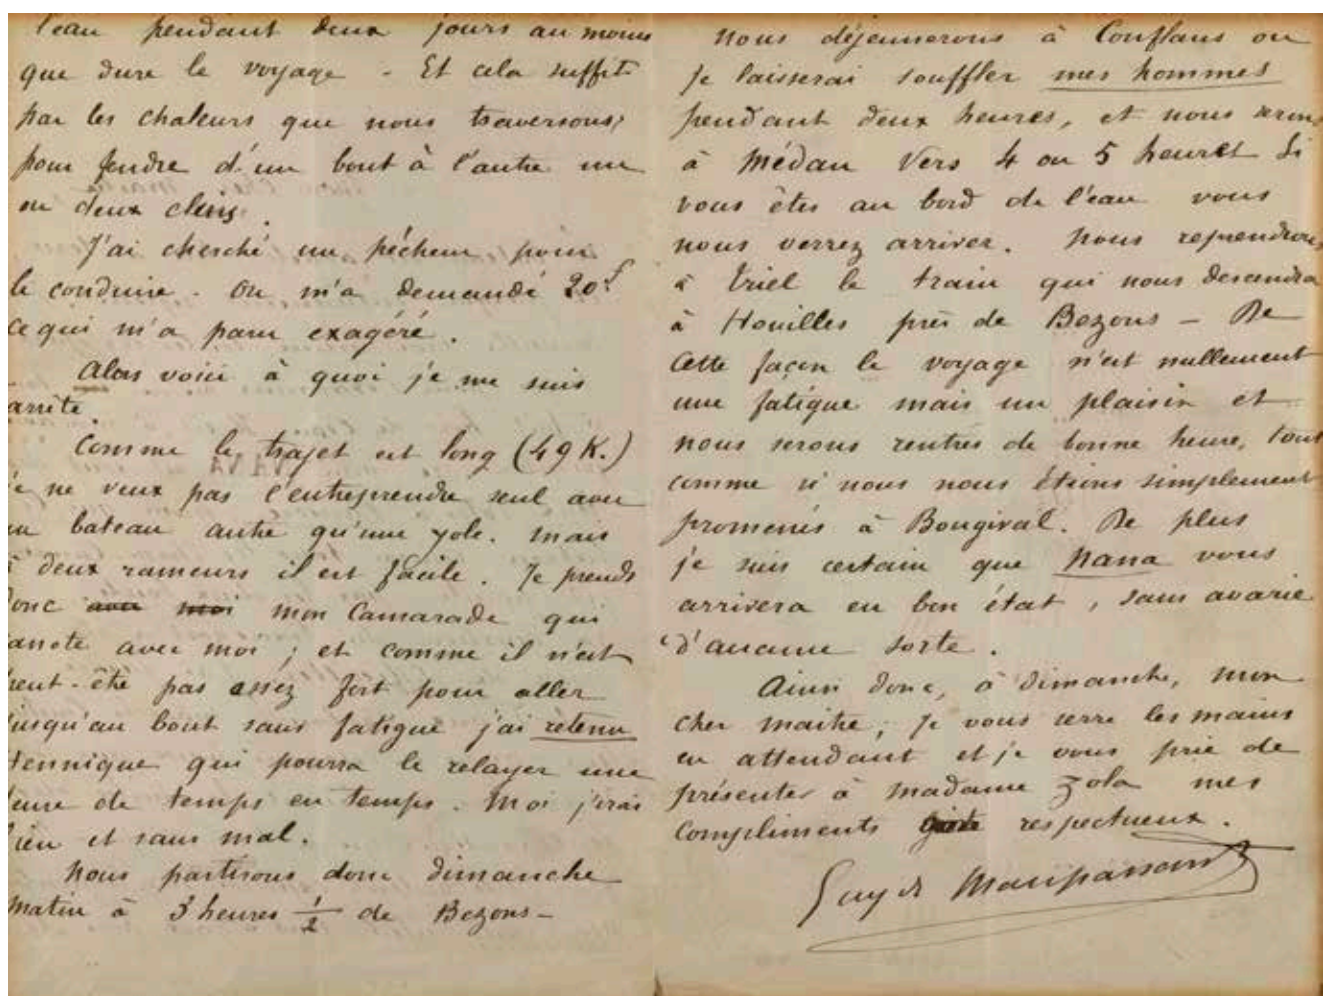 l'eau pendant deux jours au moins
que dure le voyage - Et cela suffit
par les chaleurs que nous traversons,
pour fendre d'un bout à l'autre un
ou deux clins.
J'ai cherché un pêcheur pour
le conduire - On m'a demandé 20f.
ce qui m'a paru exagéré.
Alors voici à quoi je me suis
arrêté.
Comme le trajet est long (49 K.)
je ne veux pas l'entreprendre seul avec
un bateau autre qu'une yole. mais
à deux rameurs il est facile. Je prends
donc avec moi mon Camarade qui
canote avec moi ; et comme il n'est
peut-être pas assez fort pour aller
jusqu'au bout sans fatigue j'ai retenu
Hennique qui pourra le relayer une
heure de temps en temps. Moi j'irai
bien et sans mal.
Nous partirons donc dimanche
matin à 5 heures 1/2 de Bezons -
Nous déjeunerons à Conflans ou
je laisserai souffler mes hommes
pendant deux heures, et nous serons
à Médan vers 4 ou 5 heures Si
vous êtes au bord de l'eau vous
nous verrez arriver. Nous reprendrons
à Triel le train qui nous descendra
à Houilles près de Bezons - De
cette façon le voyage n'est nullement
une fatigue mais un plaisir et
nous serons rentrés de bonne heure, tout
comme si nous nous étions simplement
promenés à Bougival. De plus
je suis certain que Nana vous
arrivera en bon état, sans avarie
d'aucune sorte.
Ainsi donc, à dimanche, mon
cher maître ; je vous serre les mains
en attendant et je vous prie de
présenter à Madame Zola mes
compliments respectueux.
Guy de Maupassant